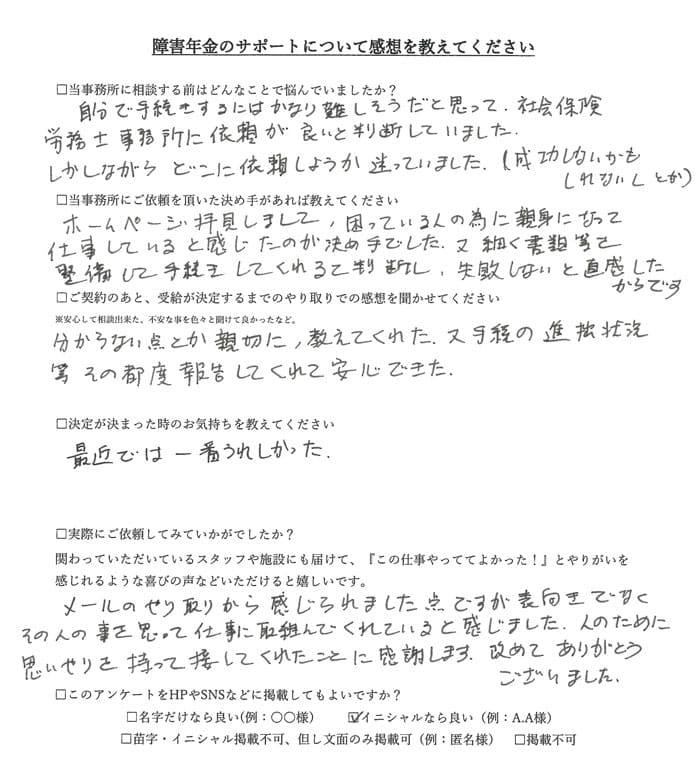 障害年金のサポートについて感想を教えてください
□当事務所に相談する前はどんなことで悩んでいましたか？
自分で手続きするにはかなり難しそうだと思って、社会保険
労務士事務所に依頼が良いと判断していました。
しかしながら どこに依頼しようか 迷っていました。(成功しないかも
しれないし とか)
□当事務所にご依頼を頂いた決め手があれば教えてください
ホームページ拝見しまして、困っている人の為に親身になって
仕事していると感じたのが決め手でした。又 細く書類等を
整備して手続きしてくれると判断し、失敗しないと直感した
からです
□ご契約のあと、受給が決定するまでのやり取りでの感想を聞かせてください
※安心して相談出来た、不安な事を色々と聞けて良かったなど。
分からない点とか親切に、教えてくれた。又手続の進捗状況
等 その都度報告してくれて安心できた。
□決定が決まった時のお気持ちを教えてください
最近では一番うれしかった。
□実際にご依頼してみていかがでしたか？
関わっていただいているスタッフや施設にも届けて、『この仕事やっててよかった！』とやりがいを
感じれるような喜びの声などいただけると嬉しいです。
メールのやり取りから感じられました点ですが表向きでなく
その人の事を思って仕事に取組んでくれていると感じました。人のために
思いやりを持って接してくれたことに感謝します。改めてありがとう
ございました。
□このアンケートをHPやSNSなどに掲載してもよいですか？
□名字だけなら良い(例：〇〇様) ☑イニシャルなら良い（例：A.A様）
□苗字・イニシャル掲載不可、但し文面のみ掲載可（例：匿名様） □掲載不可